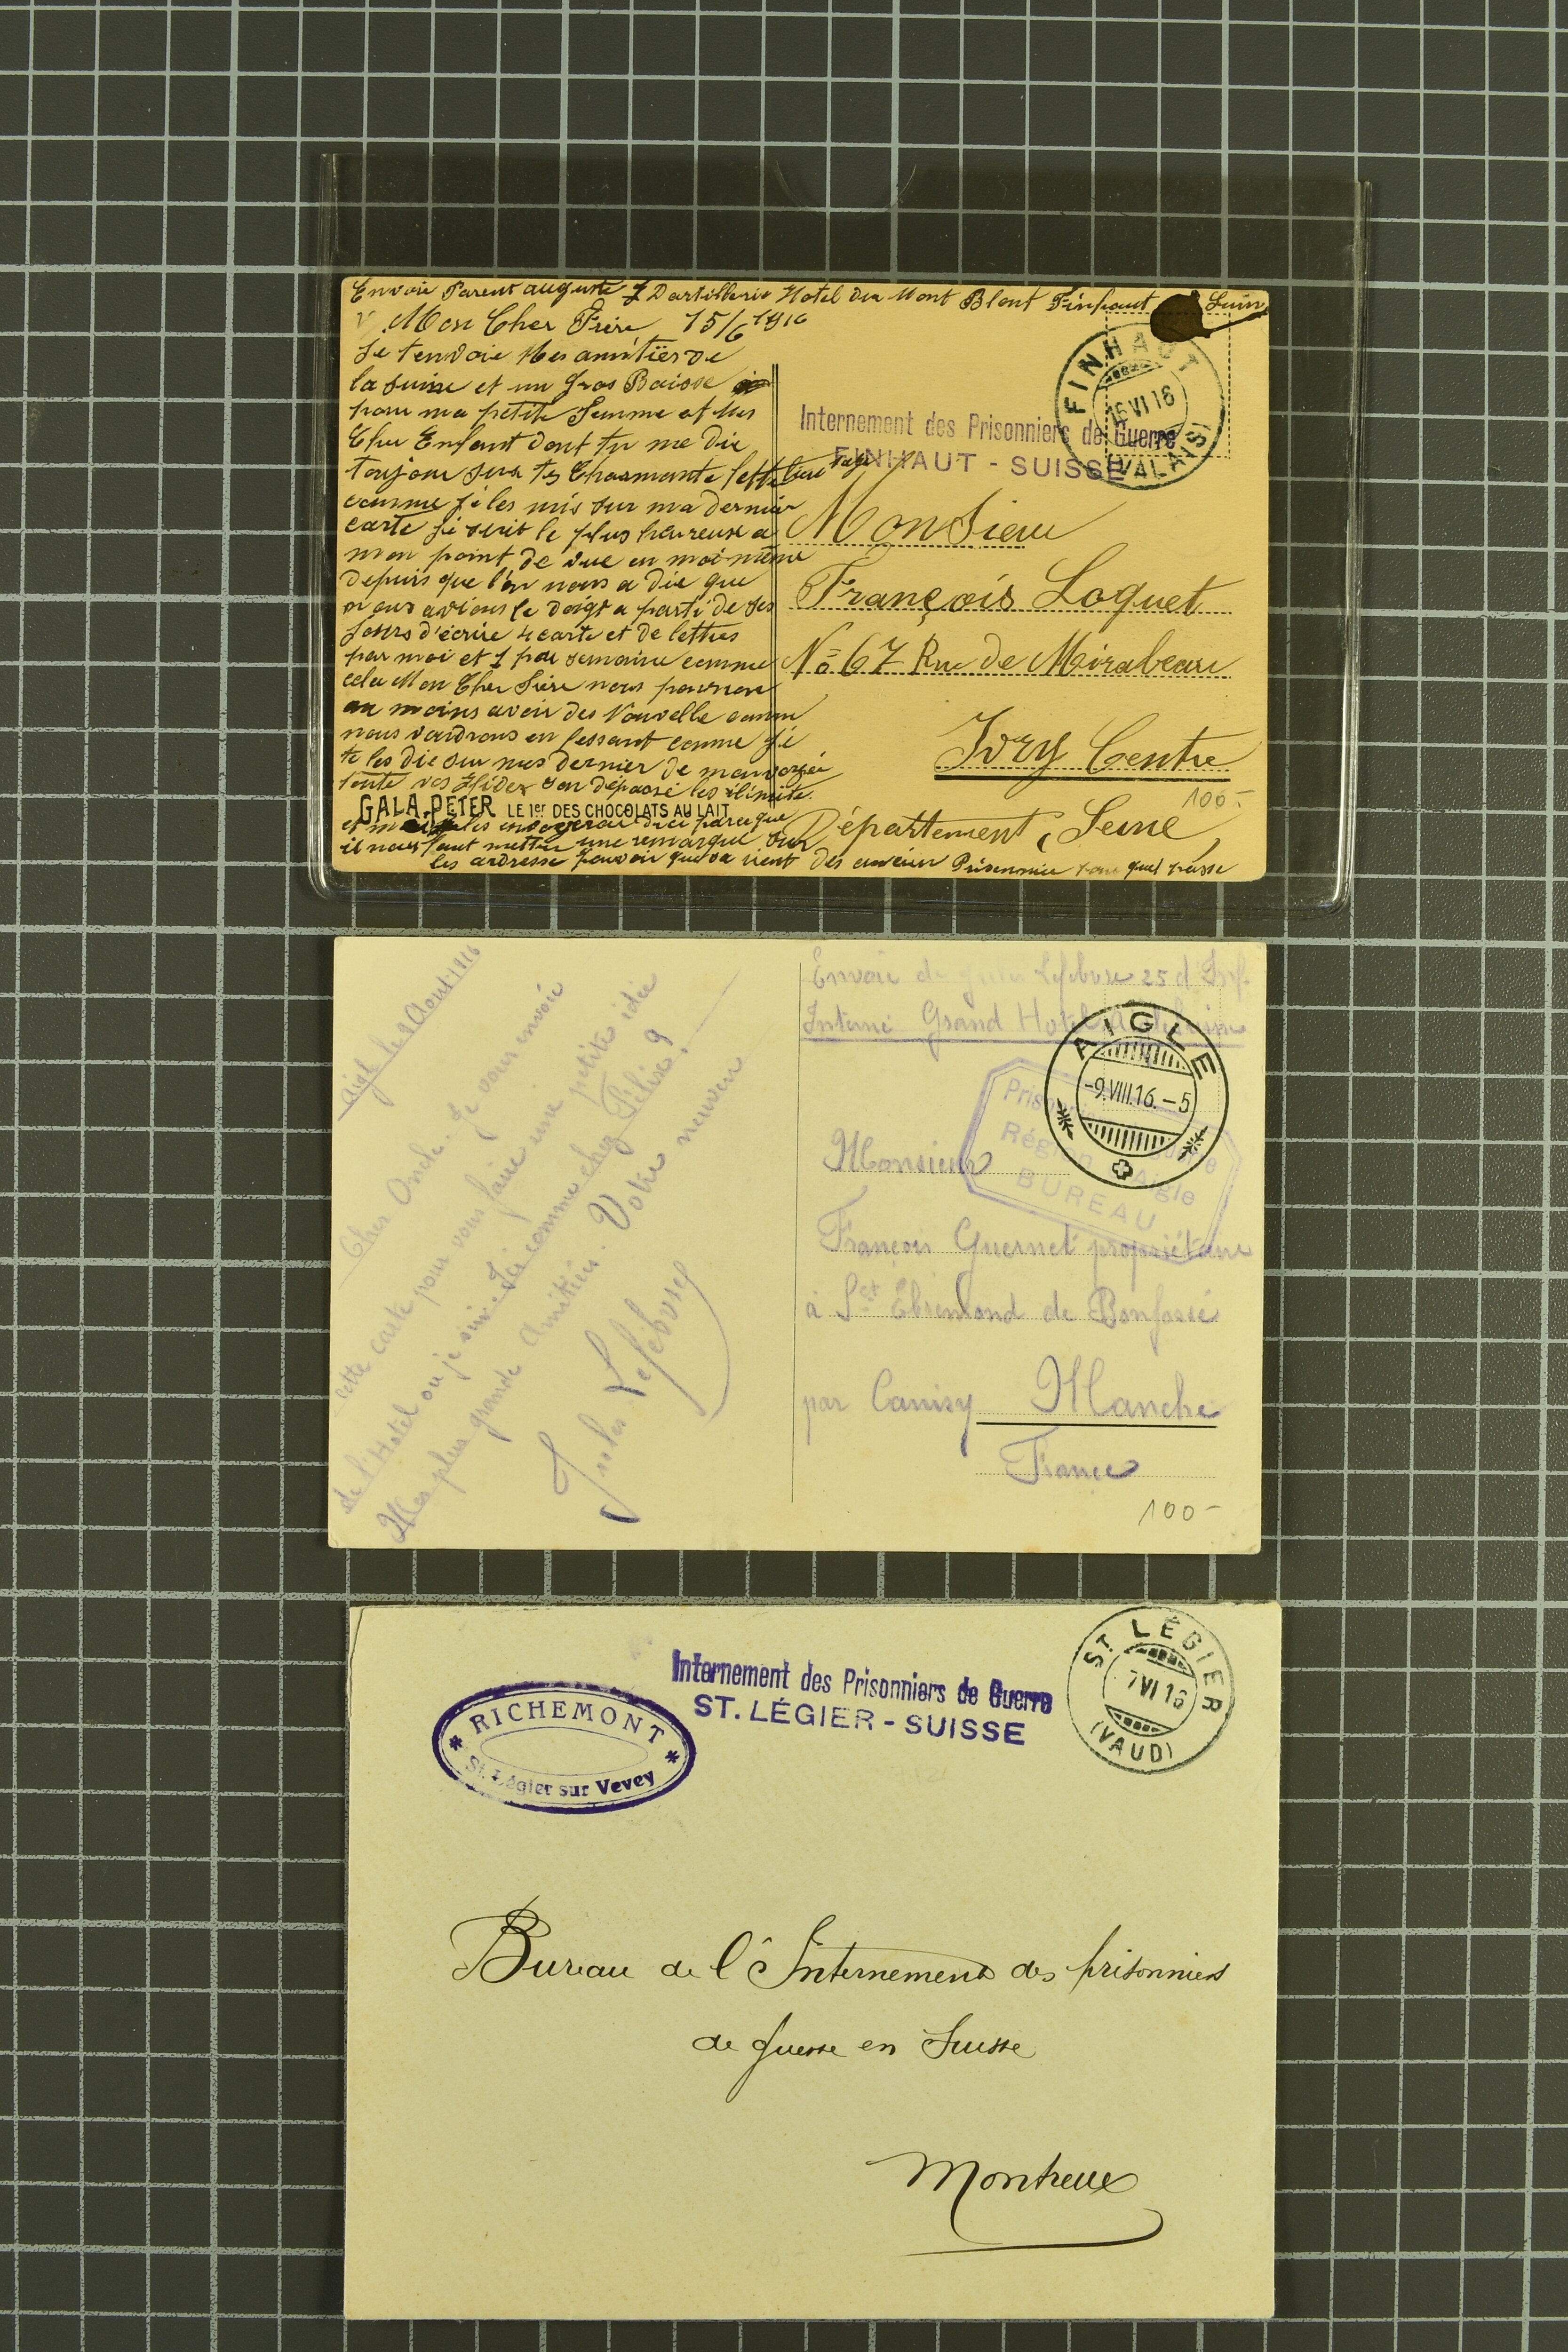 Envoie Parent auguste 7 Dartillerie Hotel du Mont Blont Finhaut Suisse
Mon Cher Frère 15/6 1916
Je tenvoie Mes amitiér de
la suisse et un Gros Baisse
pour ma petite femme et Mes
Cher Enfant dont tu me die
toujour sur tes Charmante lettre
comme je les mis sur ma dernier
carte je serit le plus heureuse a
mon point de vue en moi même
depuis que l'on nous a die que
nous avions le doigt a parti de ses
jours d'écrire 4 carte et de lettres
par moi et 1 par semaine comme
cela Mon Cher Frère nous pourrons
au moins avoir des Nouvelle comme
nous voudrons en lessant comme je
te les die sur mes dernier de
toute vos dépassé les limite.
GALA PETER LE 1er DES CHOCOLATS AU LAIT
parceque
il nous faut mettre une remarque sur
les ardresse pouvoir que sa vient des ancien Prisonnier quel passe
Internement des Prisonniers de Guerre
FINHAUT - SUISSE
FINHAUT
16 VI 16
(VALAIS)
Monsieur
François Loquet
No 67 Rue de Mirabeau
Ivry Centre
100-
Département Seine
Aigle le 9 Aout 1916
Cher Oncle. Je vous envoie
cette carte pour vous faire une petite idée
de l'Hotel ou je suis. Ici comme chez Félix?
Mes plus grande Amitiées. Votre neuveu
Jules Lefebvre
Envoie de Jules Lefebvre 25 d'Inf.
Interné Grand Hotel
AIGLE
-9.VIII.16.-5
Région Aigle
BUREAU
Monsieur
François Guernet propriétaire
à St Ebremond de Bonfossé
par Canisy Manche
France
100-
RICHEMONT
St. Légier sur Vevey
Internement des Prisonniers de Guerre
ST. LÉGIER - SUISSE
ST. LÉGIER
7 VI 16
(VAUD)
Bureau de l'Internement des prisonniers
de guerre en Suisse
Montreux